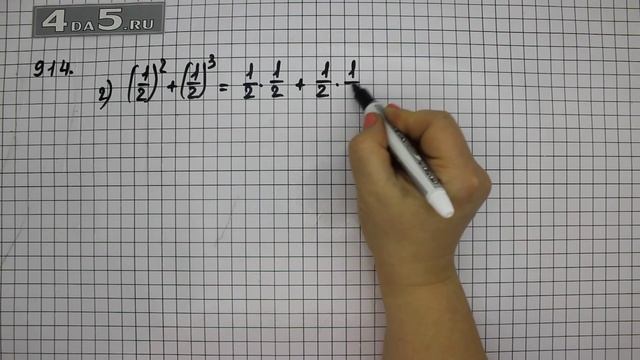 4DA5.RU
914.
2) (1/2)² + (1/2)³ = 1/2 · 1/2 + 1/2 · 1/